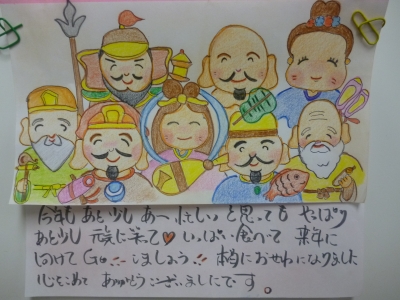 今年も あと少し あ〜忙しい と思っても やっぱり
あと少し 元気に笑って♥ いっぱい食べて 来年に
向けて Go!! しましょう 本当におせわになりました
心をこめて ありがとうございましたです。